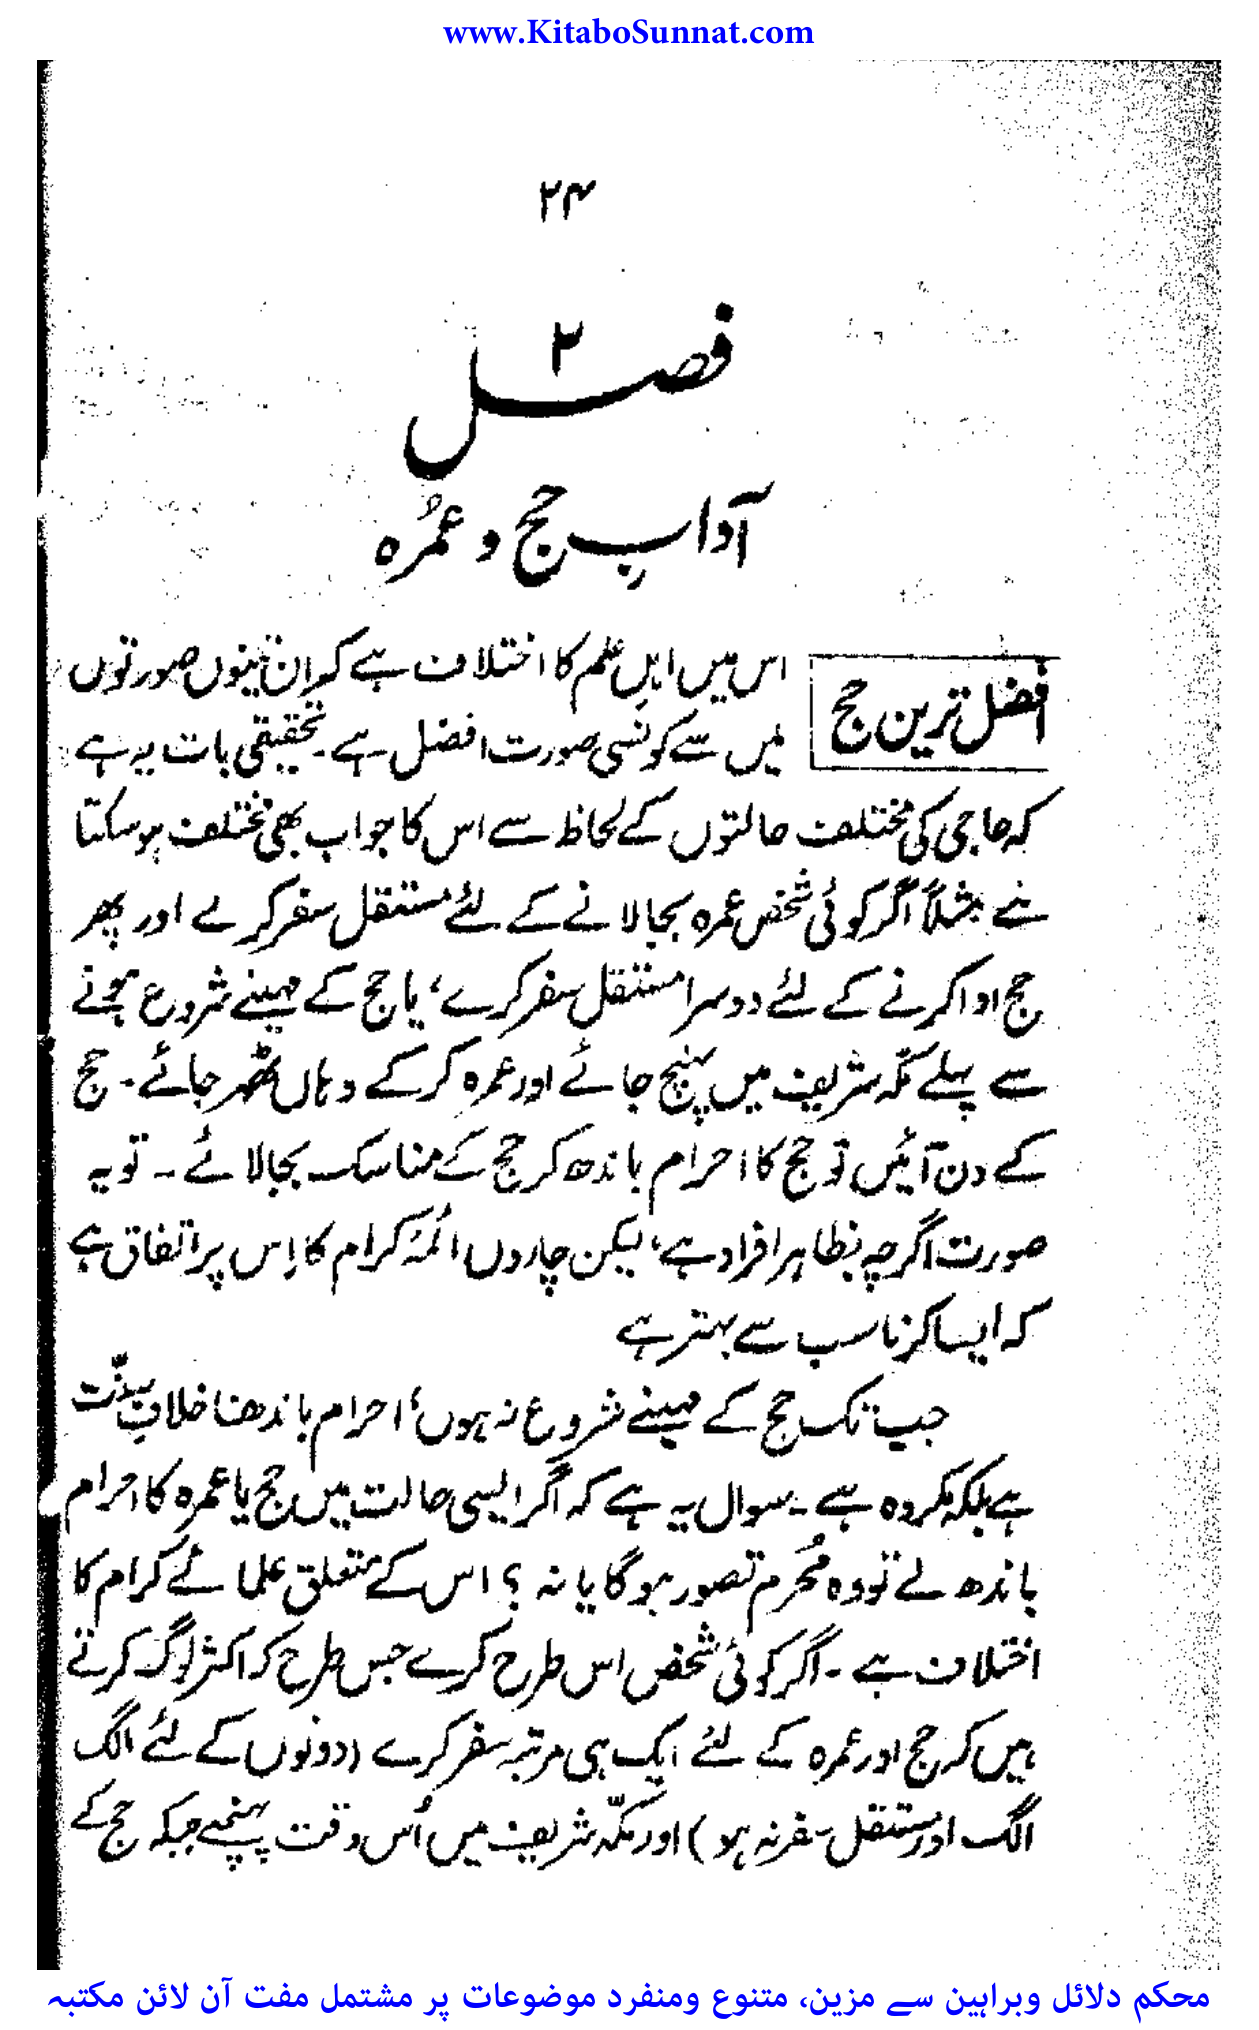 www.KitaboSunnat.com
۲۴
فصل ۲
آدابِ حج و عمُرہ
افضل ترین حج
اس میں اہلِ علم کا اختلاف ہے کہ اِن تینوں صورتوں
میں سے کونسی صورت افضل ہے۔ تحقیقی بات یہ ہے
کہ حاجی کی مختلف حالتوں کے لحاظ سے اس کا جواب بھی مختلف ہو سکتا
ہے۔ مثلاً اگر کوئی شخص عمرہ بجا لانے کے لئے مستقل سفر کرے اور پھر
حج ادا کرنے کے لئے دوسرا مستقل سفر کرے، یا حج کے مہینے شروع ہونے
سے پہلے مکہ شریف میں پہنچ جائے اور عمرہ کر کے وہاں ٹھہر جائے۔ حج
کے دن آئیں تو حج کا احرام باندھ کر حج کے مناسک بجا لائے ۔ تو یہ
صورت اگرچہ بظاہر افراد ہے، لیکن چاروں ائمۂ کرام کا اِس پر اتفاق ہے
کہ ایسا کرنا سب سے بہتر ہے
جب تک حج کے مہینے شروع نہ ہوں، احرام باندھنا خلافِ سنّت
ہے بلکہ مکروہ ہے ۔ سوال یہ ہے کہ اگر ایسی حالت میں حج یا عمرہ کا احرام
باندھ لے تو وہ مُحرم تصور ہو گا یا نہ ؟ اس کے متعلق علمائے کرام کا
اختلاف ہے ۔ اگر کوئی شخص اس طرح کرے جس طرح کہ اکثر لوگ کرتے
ہیں کہ حج اور عمرہ کے لئے ایک ہی مرتبہ سفر کرے (دونوں کے لئے الگ
الگ اور مستقل سفر نہ ہو ) اور مکّہ شریف میں اُس وقت پہنچے جبکہ حج کے
محکم دلائل وبراہین سے مزین، متنوع ومنفرد موضوعات پر مشتمل مفت آن لائن مکتبہ